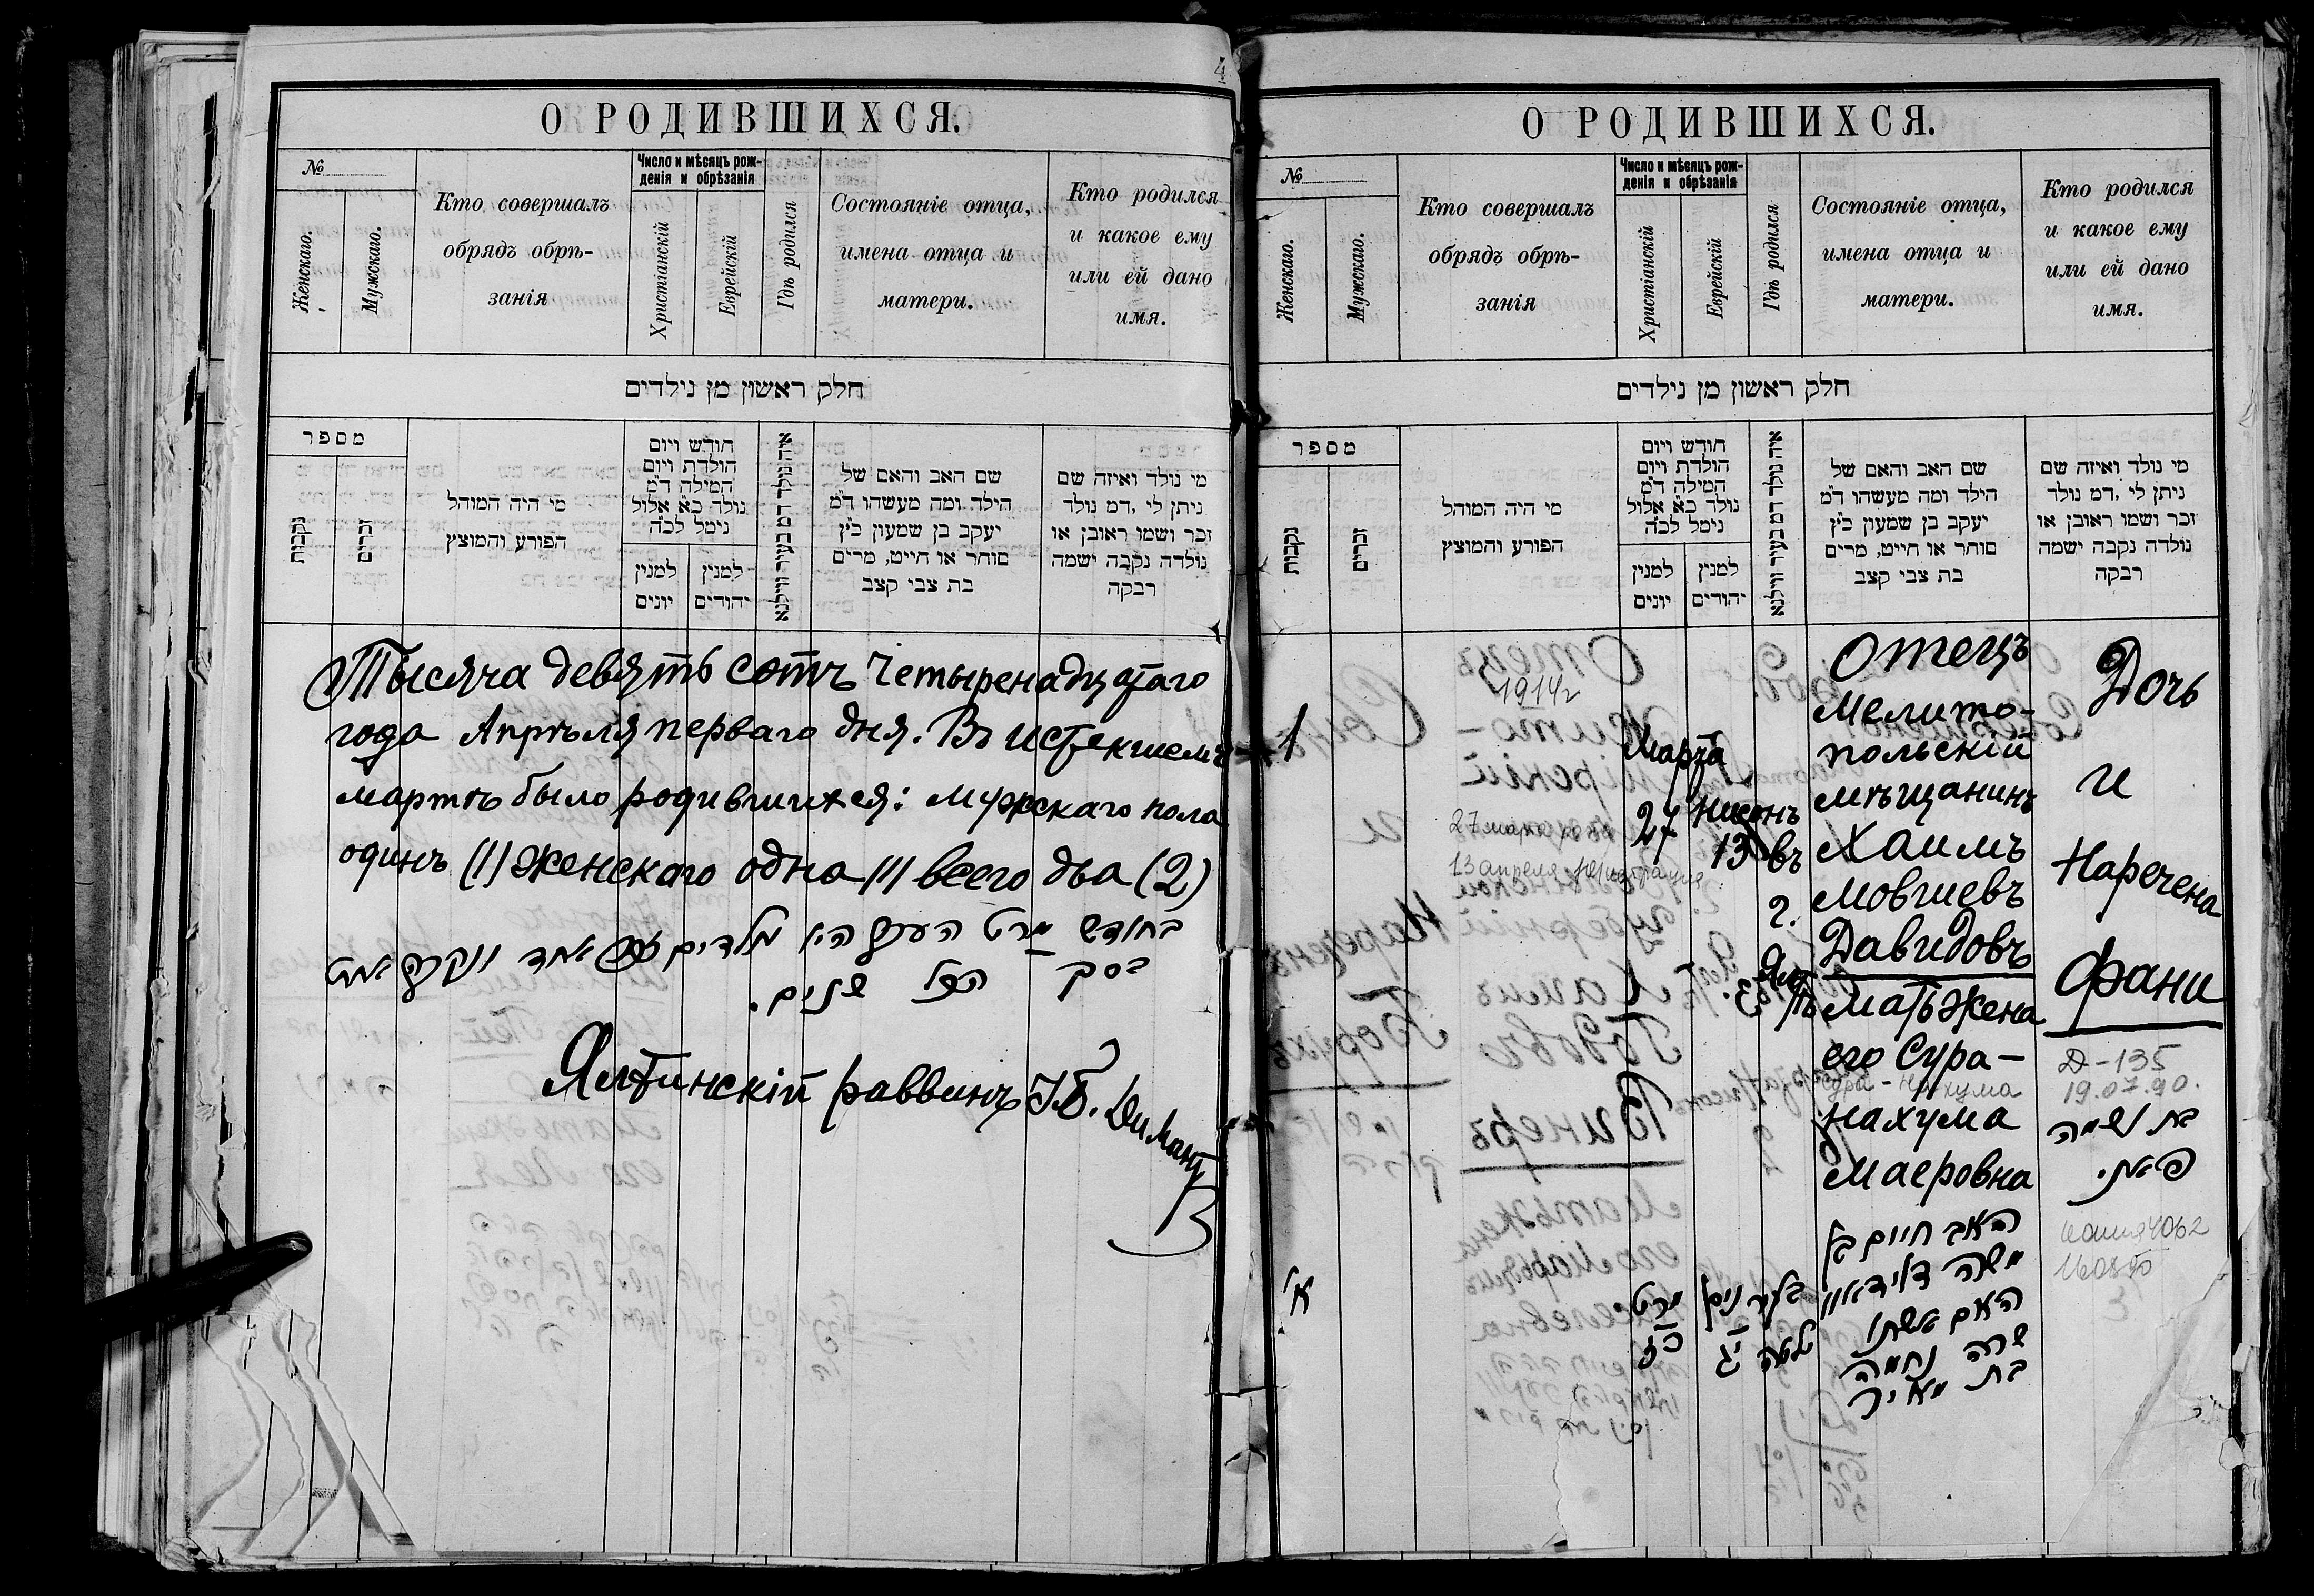 4
О РОДИВШИХСЯ.
№
Женскаго.
Мужскаго.
Кто совершалъ
обрядъ обрѣ-
занія
Число и мѣсяцъ рож-
денія и обрѣзанія
Христіанскій
Еврейскій
Гдѣ родился
Состояніе отца,
имена отца и
матери.
Кто родился
и какое ему
или ей дано
имя.
חלק ראשון מן נילדים
מספר
נקבות
זכרים
מי היה המוהל
הפורע והמוצץ
חודש ויום
הולדת ויום
המילה ד"מ
נולד כ"א אלול
נימל לכ"ה
למנין
יונים
למנין
יהודים
איה נולד דמ בעיר ווילנא
שם האב והאם של
הילד ומה מעשהו ד"מ
יעקב בן שמעון כ"ץ
סוחר או חייט, מרים
בת צבי קצב
מי נולד ואיזה שם
ניתן לי, דמ נולד
זכר ושמו ראובן או
נולדה נקבה ישמה
רבקה
Тысяча девять сотъ Четыренадцатаго
года Апрѣля перваго дня. Въ истекшемъ
мартѣ было родившихся: мужскаго пола
одинъ (1) женскаго одна (1) всего два (2)
בחודש מרט העבר היו נולדים זכר אחד ונקבה אחת
בסך הכל שנים.
Ялтинскій раввинъ
О РОДИВШИХСЯ.
№
Женскаго.
Мужскаго.
Кто совершалъ
обрядъ обрѣ-
занія
Число и мѣсяцъ рож-
денія и обрѣзанія
Христіанскій
Еврейскій
Гдѣ родился
Состояніе отца,
имена отца и
матери.
Кто родился
и какое ему
или ей дано
имя.
חלק ראשון מן נילדים
מספר
נקבות
זכרים
מי היה המוהל
הפורע והמוצץ
חודש ויום
הולדת ויום
המילה ד"מ
נולד כ"א אלול
נימל לכ"ה
למנין
יונים
למנין
יהודים
איה נולד דמ בעיר ווילנא
שם האב והאם של
הילד ומה מעשהו ד"מ
יעקב בן שמעון כ"ץ
סוחר או חייט, מרים
בת צבי קצב
מי נולד ואיזה שם
ניתן לי, דמ נולד
זכר ושמו ראובן או
נולדה נקבה ישמה
רבקה
1
1914г
27 марта
13 апреля
Марта
27
Нисонъ
13
въ
г.
Ялтѣ
Отецъ
Мелито-
польскій
мѣщанинъ
Хаимъ
Мовшевъ
Давидовъ
мать жена
его Сура-
Сура-Нахума
нахума
Маеровна
האב חיים בן
משה דאווידאוו
האם אשתו
שרה נחמה
בת מאיר
Дочь
и
Наречена
Фани
Д-135
19.07.90.
בת ושמה
פאני
א'
מרט
כז
ניסן
יג
בעיר
יאלטה